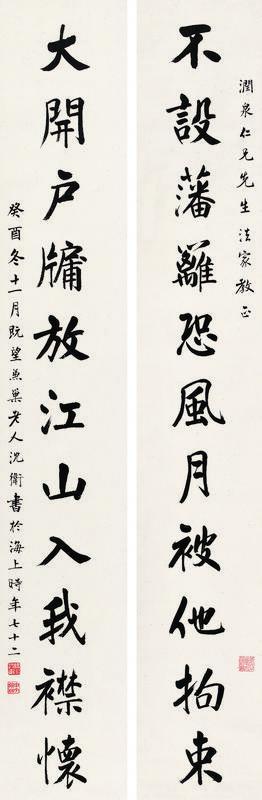 潤泉仁兄先生法家教正
不設藩籬恐風月被他拘束
大開戶牖放江山入我襟懷
癸酉冬十一月既望兼巢老人沈衛書於海上時年七十二